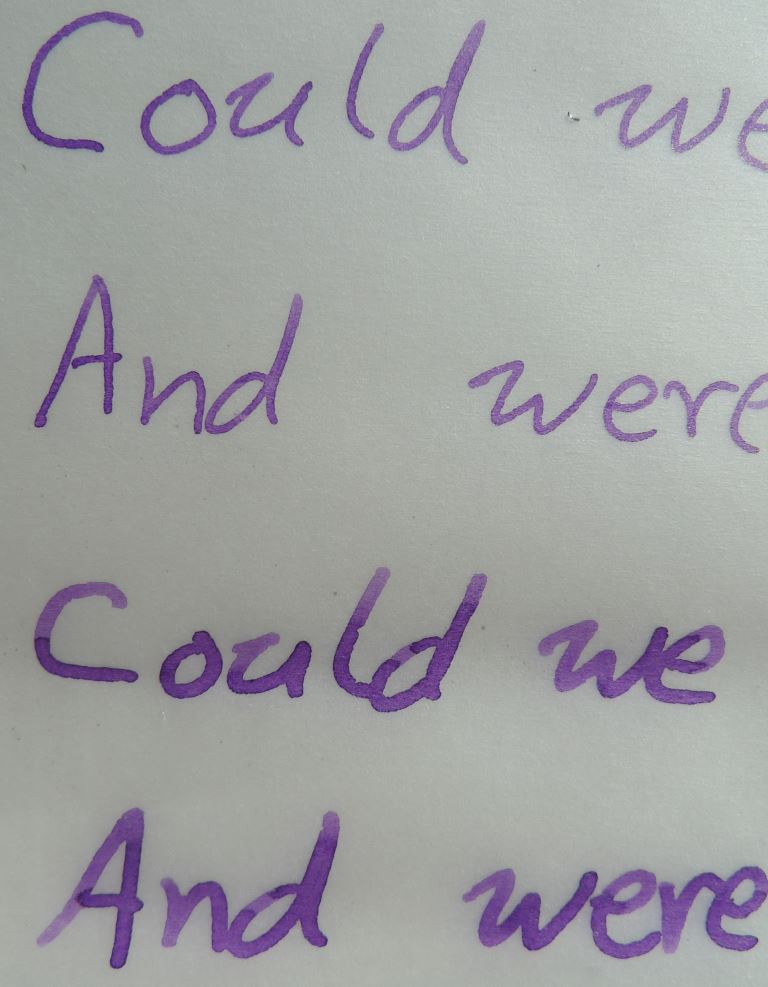 Could we
And were
Could we
And were